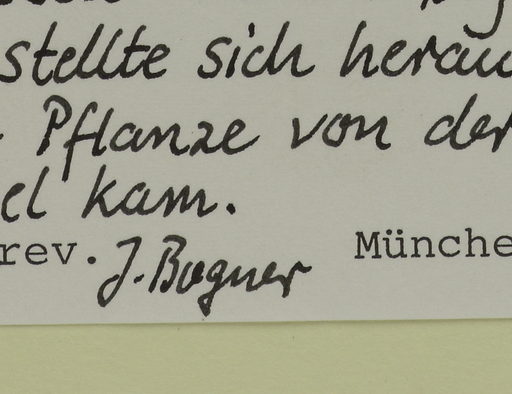 stellte sich herau
Pflanze von der
el kam.
rev. J. Bogner Münche